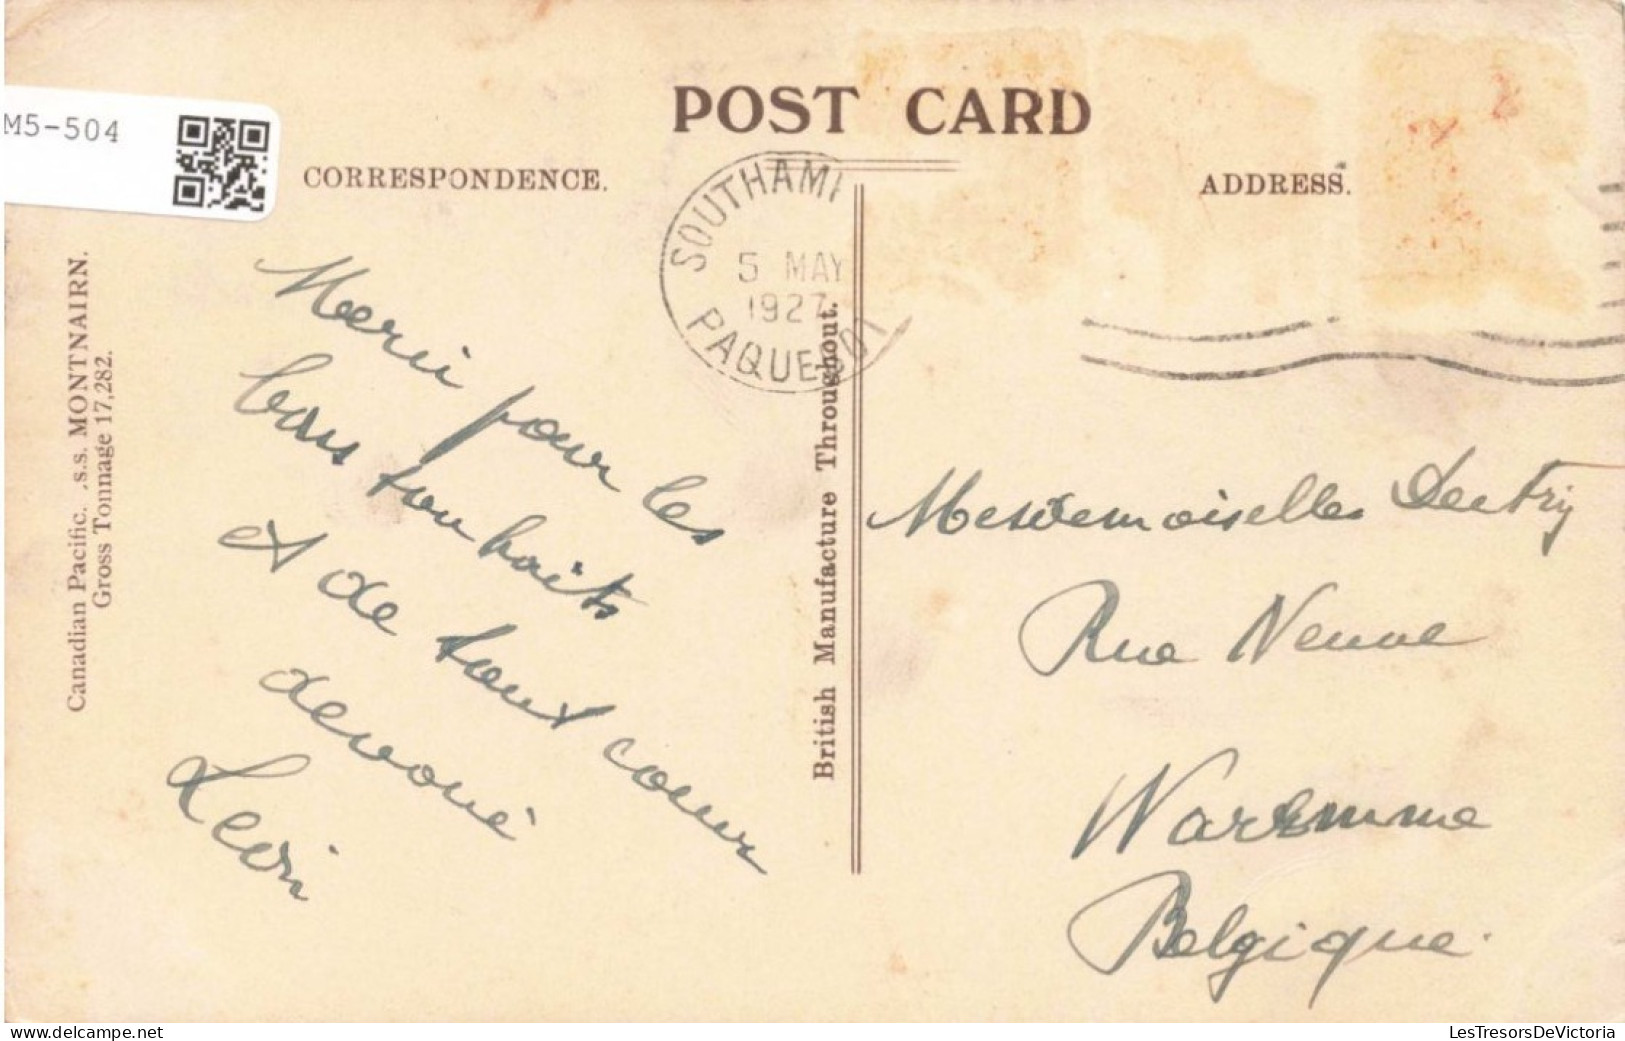 M5-504
POST CARD
CORRESPONDENCE.
ADDRESS.
SOUTHAM
5 MAY
1927
PAQUEBOT
Canadian Pacific. s.s. MONTNAIRN.
Gross Tonnage 17,282.
British Manufacture Throughout.
Merci pour les
bons souhaits
et de tout coeur
devoué
Mesdemoiselles
Rue Neuve
Waremme
Belgique.
delcampe.net
LesTresorsDeVictoria